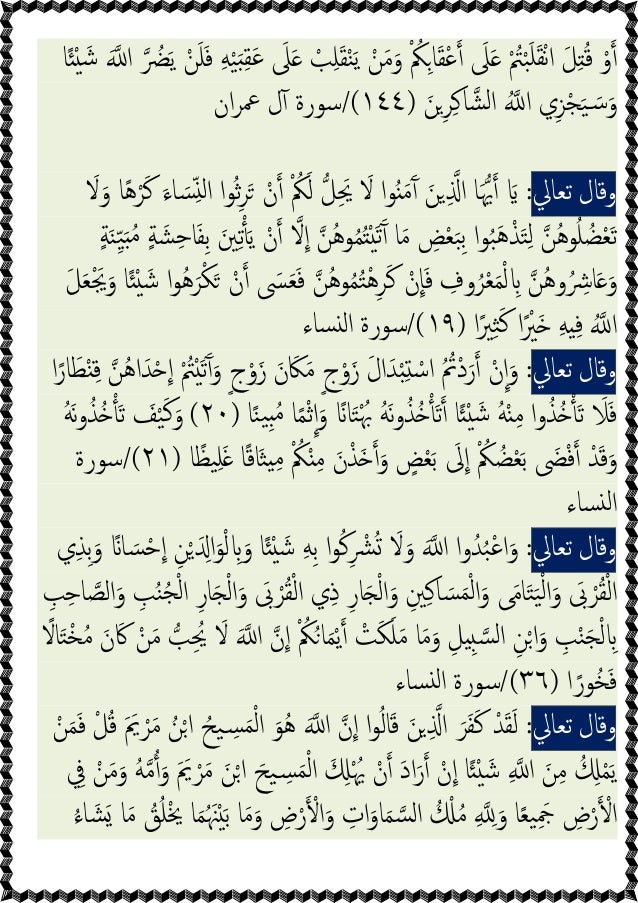 أَوْ قُتِلَ انْقَلَبْتُمْ عَلَى أَعْقَابِكُمْ وَمَنْ يَنْقَلِبْ عَلَى عَقِبَيْهِ فَلَنْ يَضُرَّ اللَّهَ شَيْئًا
وَسَيَجْزِي اللَّهُ الشَّاكِرِينَ (١٤٤)/سورة آل عمران
وقال تعالي: يَا أَيُّهَا الَّذِينَ آمَنُوا لَا يَحِلُّ لَكُمْ أَنْ تَرِثُوا النِّسَاءَ كَرْهًا وَلَا
تَعْضُلُوهُنَّ لِتَذْهَبُوا بِبَعْضِ مَا آتَيْتُمُوهُنَّ إِلَّا أَنْ يَأْتِينَ بِفَاحِشَةٍ مُبَيِّنَةٍ
وَعَاشِرُوهُنَّ بِالْمَعْرُوفِ فَإِنْ كَرِهْتُمُوهُنَّ فَعَسَى أَنْ تَكْرَهُوا شَيْئًا وَيَجْعَلَ
اللَّهُ فِيهِ خَيْرًا كَثِيرًا (١٩)/سورة النساء
وقال تعالي: وَإِنْ أَرَدْتُمُ اسْتِبْدَالَ زَوْجٍ مَكَانَ زَوْجٍ وَآتَيْتُمْ إِحْدَاهُنَّ قِنْطَارًا
فَلَا تَأْخُذُوا مِنْهُ شَيْئًا أَتَأْخُذُونَهُ بُهْتَانًا وَإِثْمًا مُبِينًا (٢٠) وَكَيْفَ تَأْخُذُونَهُ
وَقَدْ أَفْضَى بَعْضُكُمْ إِلَى بَعْضٍ وَأَخَذْنَ مِنْكُمْ مِيثَاقًا غَلِيظًا (٢١)/سورة
النساء
وقال تعالي: وَاعْبُدُوا اللَّهَ وَلَا تُشْرِكُوا بِهِ شَيْئًا وَبِالْوَالِدَيْنِ إِحْسَانًا وَبِذِي
الْقُرْبَى وَالْيَتَامَى وَالْمَسَاكِينِ وَالْجَارِ ذِي الْقُرْبَى وَالْجَارِ الْجُنُبِ وَالصَّاحِبِ
بِالْجَنْبِ وَابْنِ السَّبِيلِ وَمَا مَلَكَتْ أَيْمَانُكُمْ إِنَّ اللَّهَ لَا يُحِبُّ مَنْ كَانَ مُخْتَالًا
فَخُورًا (٣٦)/سورة النساء
وقال تعالي: لَقَدْ كَفَرَ الَّذِينَ قَالُوا إِنَّ اللَّهَ هُوَ الْمَسِيحُ ابْنُ مَرْيَمَ قُلْ فَمَنْ
يَمْلِكُ مِنَ اللَّهِ شَيْئًا إِنْ أَرَادَ أَنْ يُهْلِكَ الْمَسِيحَ ابْنَ مَرْيَمَ وَأُمَّهُ وَمَنْ فِي
الْأَرْضِ جَمِيعًا وَلِلَّهِ مُلْكُ السَّمَاوَاتِ وَالْأَرْضِ وَمَا بَيْنَهُمَا يَخْلُقُ مَا يَشَاءُ